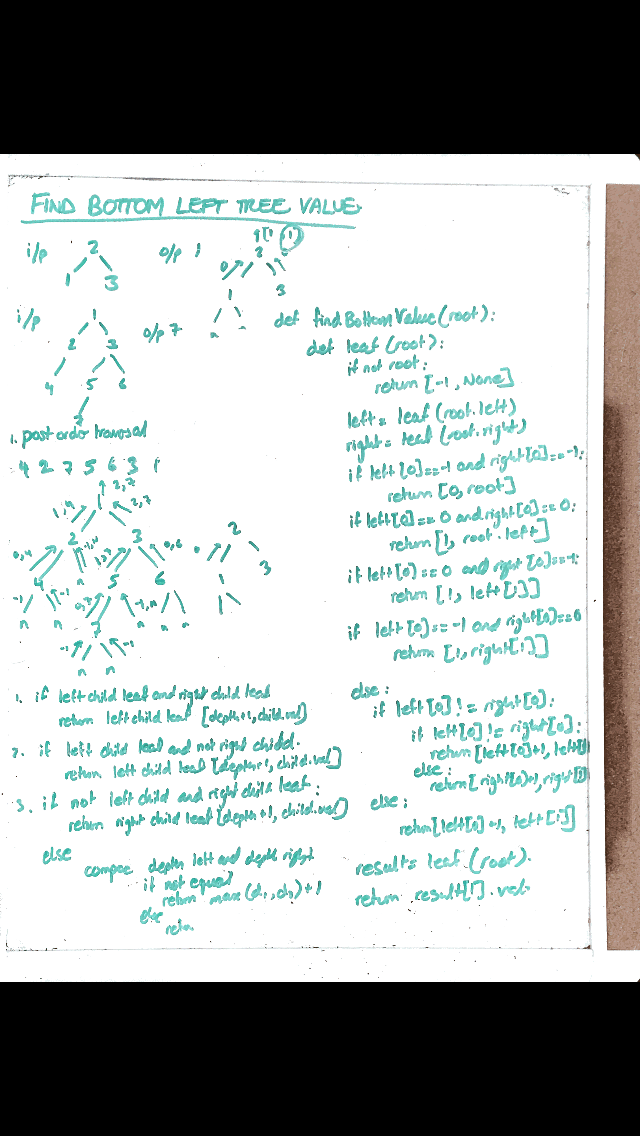 FIND BOTTOM LEFT TREE VALUE.
i/p
2
1 3
o/p 1
1
2
0
1
3
n n
i/p
1
2 3
4 5 6
7
o/p 7
1. post order traversal
4 2 7 5 6 3 1
2,7
1,n 1 2,7
2 3
0,4 -1,n 0,6
4 n 5 6
-1 -1 0,7 -1,n
n n 7 n n n
-1 -1
n n
2
0
1 3
1. if left child leaf and right child leaf
return left child leaf [depth+1, child.val)
2. if left child leaf and not right child.
return left child leaf [depth+1, child.val]
3. if not left child and right child leaf:
return right child leaf [depth+1, child.val)
else
compare depth left and depth right
if not equal
return max(d1, d2) + 1
else
def findBottomValue(root):
def leaf (root):
if not root:
return [-1, None]
left = leaf (root.left)
right = leaf (root.right)
if left[0]==-1 and right[0]==-1:
return [0, root]
if left[0] == 0 and right[0] == 0:
return [1, root.left]
if left[0] == 0 and right [0]==-1:
return [1, left[1]]
if left[0] == -1 and right[0]==0
return [1, right[1]]
else:
if left[0] != right[0]:
if left[0] != right[0]:
return [left[0]+1, left[1]
else:
return[right[0]+1, right[1]
else:
return[left[0]+1, left[1]]
result = leaf (root).
return result[1].val